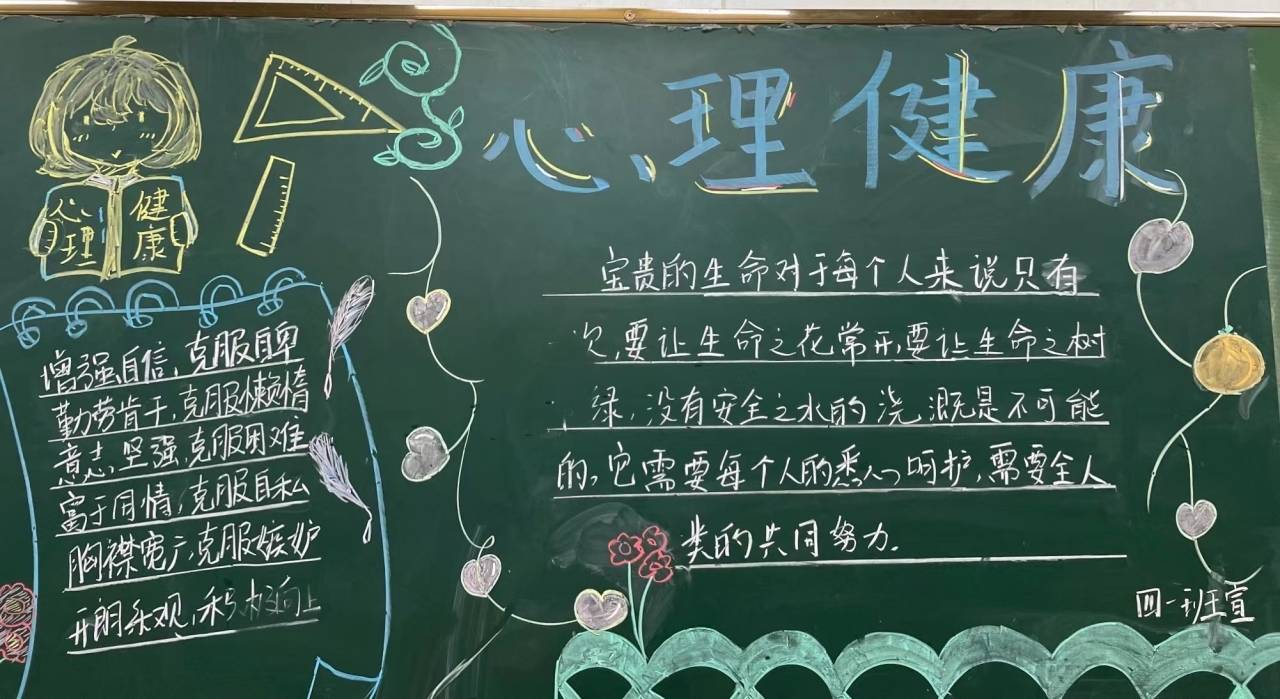 心理健康
心理
健康
增强自信，克服自卑
勤劳肯干，克服懒惰
意志坚强，克服困难
富于同情，克服自私
胸襟宽广，克服嫉妒
开朗乐观，积极向上
宝贵的生命对于每个人来说只有
次，要让生命之花常开，要让生命之树
绿，没有安全之水的浇溉是不可能
的，它需要每个人的悉心呵护，需要全人
类的共同努力.
四一班王宣